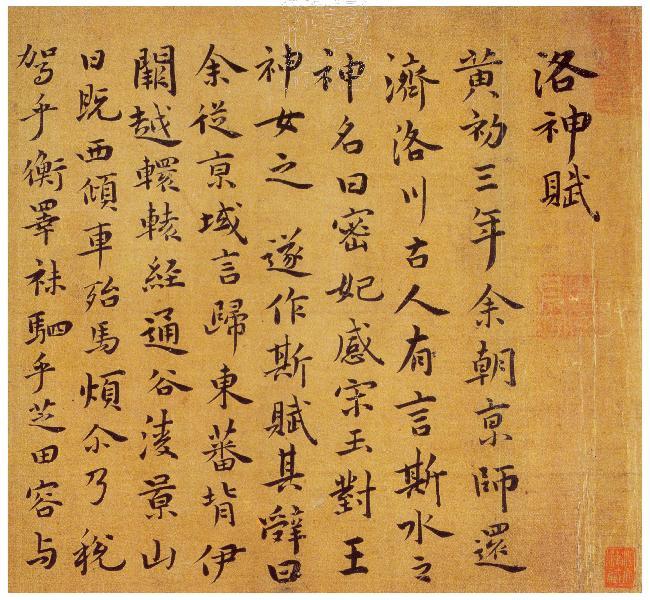 洛神賦
黃初三年余朝京師還
濟洛川古人有言斯水之
神名曰密妃感宋玉對王
神女之 遂作斯賦其辭曰
余從京域言歸東蕃背伊
闕越轘轅經通谷淩景山
日既西傾車殆馬煩尒乃稅
駕乎衡睪秣駟乎芝田容与